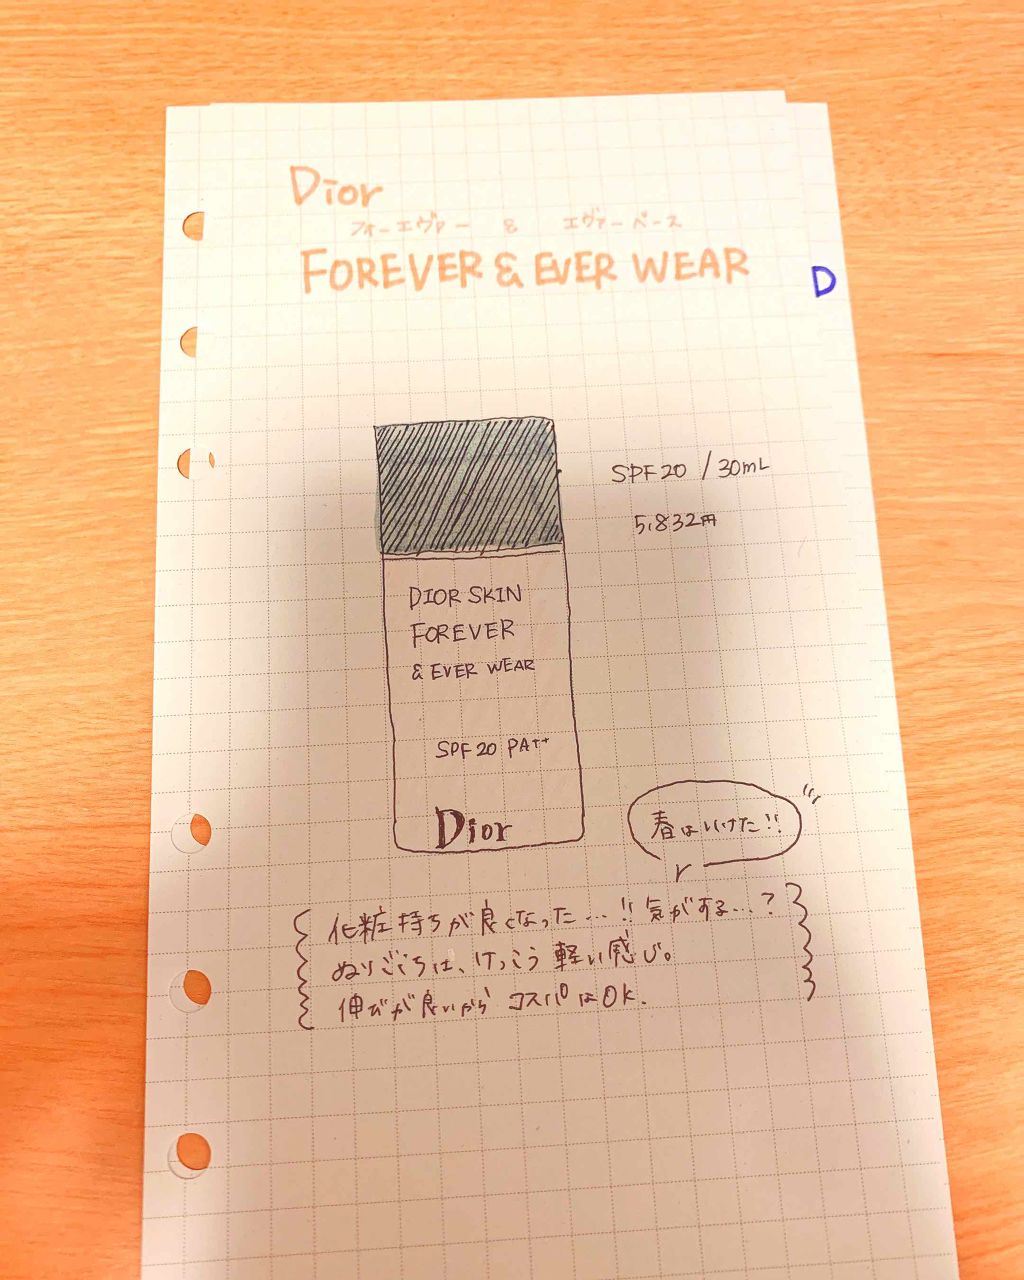 Dior
フォーエヴァー & エヴァーベース
FOREVER & EVER WEAR
D
SPF20 / 30mL
5,832円
DIOR SKIN
FOREVER
& EVER WEAR
SPF20 PA++
Dior
春はいけた!!
化粧持ちが良くなった…!!気がする…?
ぬりごこちは、けっこう軽い感じ。
伸びが良いから コスパはOK.